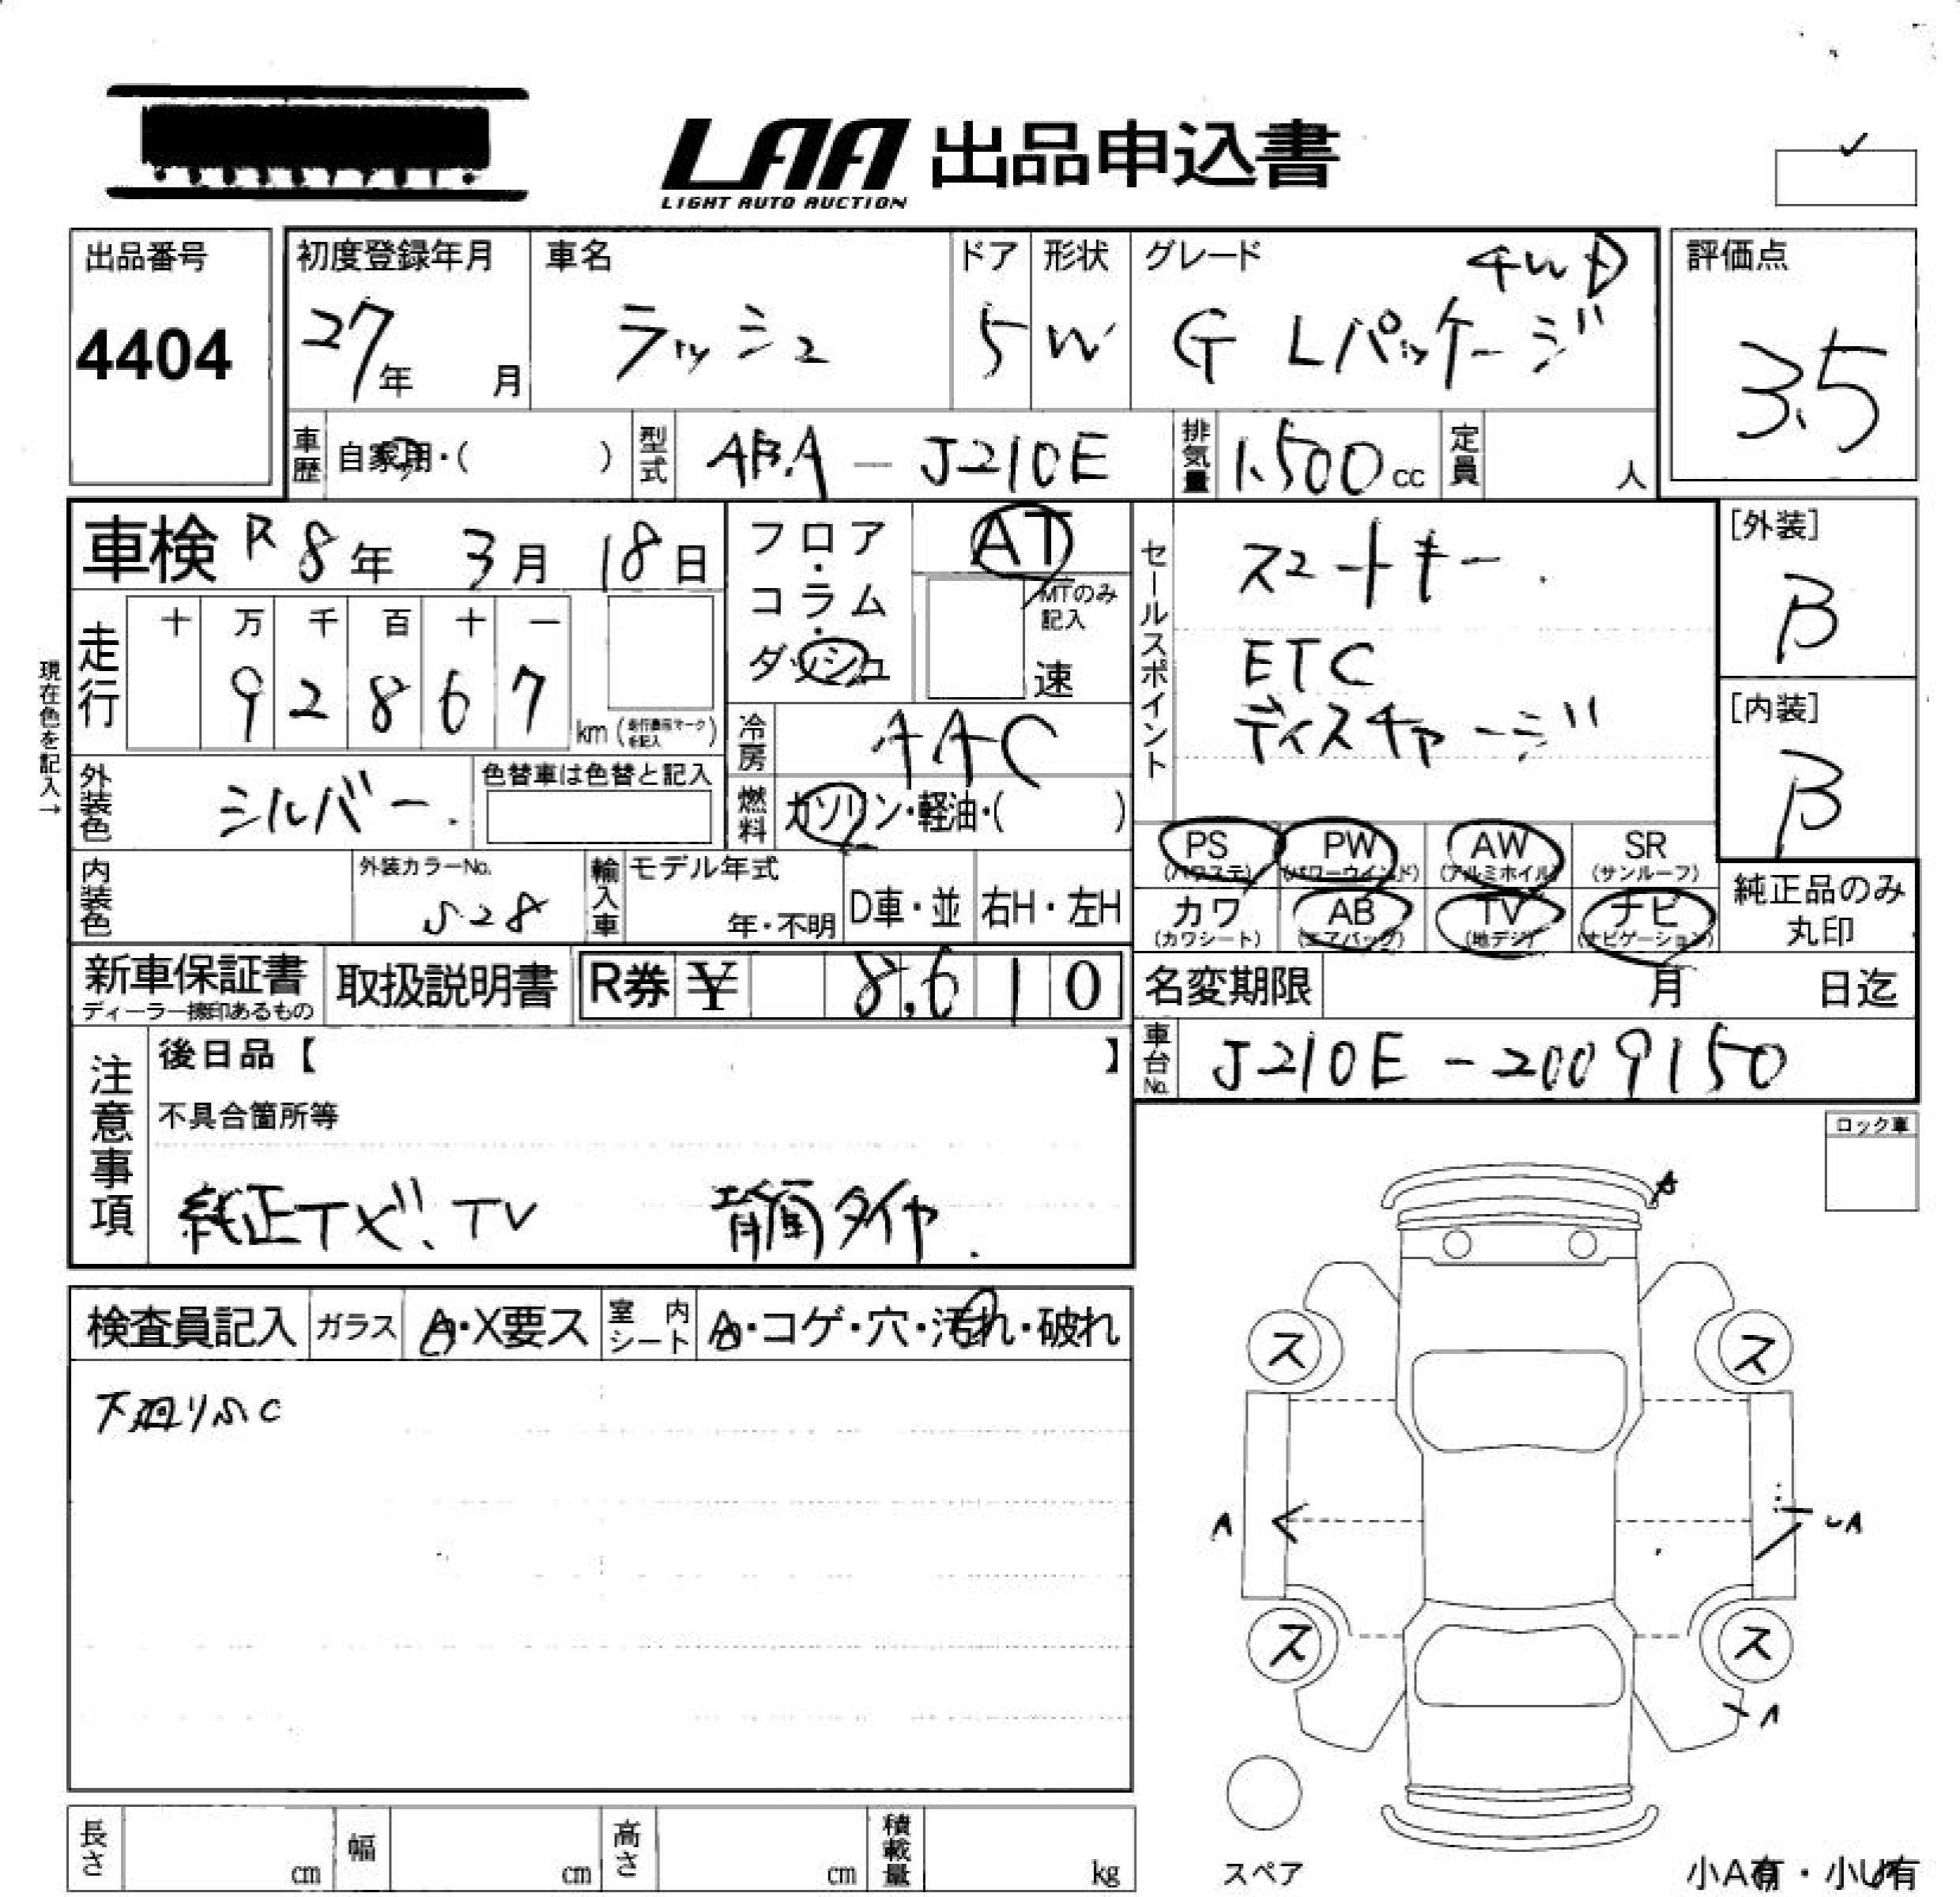 LAA 出品申込書
LIGHT AUTO AUCTION
出品番号
4404
初度登録年月
27年 月
車名
ラッシュ
ドア
5
形状
W
グレード 4WD
G Lパッケージ
評価点
3.5
車歴 自家用・( )
型式 ABA - J210E
排気量 1.500 cc
定員 人
車検 R 8年 3月 18日
走行 十 万 千 百 十 一
9 2 8 6 7 km (走行農南マーク を記入)
現在色を記入→
フロア・コラム・ダッシュ
AT
MTのみ記入
速
冷房 AAC
燃料 ガソリン・軽油・( )
外装色 シルバー.
色替車は色替と記入
内装色
外装カラーNo.
S28
輸入車 モデル年式
年・不明
D車・並
右H・左H
セールスポイント
スマートキー.
ETC
ディスチャージ
[外装]
B
[内装]
B
PS (パワステ) PW (パワーウインド) AW (アルミホイル) SR (サンルーフ)
カワ (カワシート) AB (エアバッグ) TV (地デジ) ナビ (ナビゲーション)
純正品のみ
丸印
新車保証書
ディーラー捺印あるもの
取扱説明書
R券 ¥ 8,610
名変期限 月 日迄
車台No. J210E - 2009150
注意事項
後日品【 】
不具合箇所等
純正ナビ.TV タイヤ.
ロック車
検査員記入 ガラス A・X要ス 室内シート A・コゲ・穴・汚れ・破れ
下廻りふC
A
ス ス
A UA
ス ス
A
スペア
小A有・小U有
長さ cm 幅 cm 高さ cm 積載量 kg